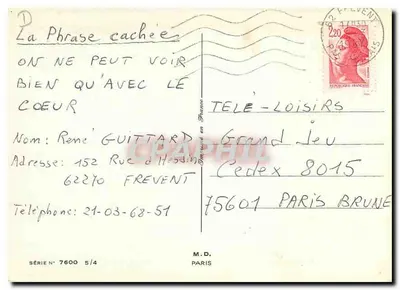 D
La Phrase cachée
ON NE PEUT VOIR
BIEN QU'AVEC LE
CŒUR
Nom: René GUITTARD
Adresse: 152 Rue d'Hesdin
62270 FREVENT
Téléphone: 21-03-68-51
62 FREVENT
2,20
TELÉ-LOISIRS
Grand Jeu
Cedex 8015
75601 PARIS BRUNE
CPAPHIL
SÉRIE N° 7600 S/4
M.D.
PARIS